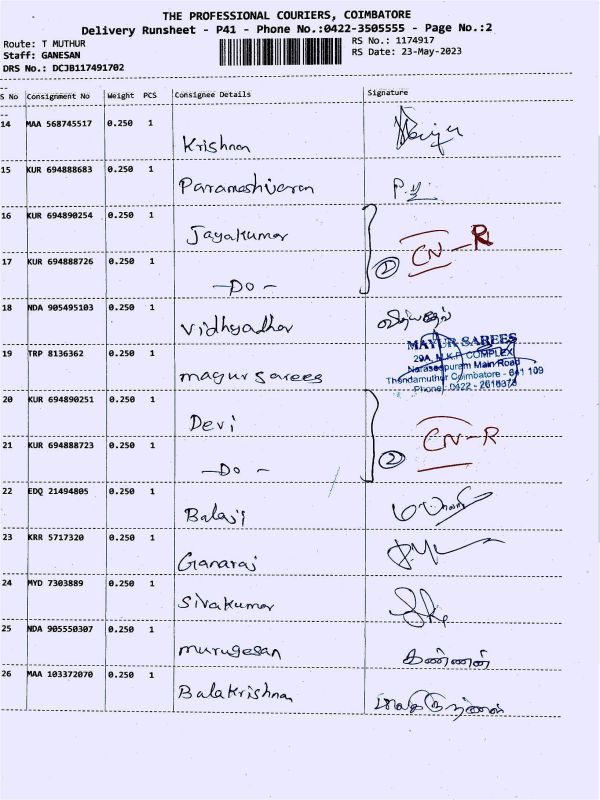 THE PROFESSIONAL COURIERS, COIMBATORE
Delivery Runsheet - P41 - Phone No.:0422-3505555 - Page No.:2
Route: T MUTHUR
RS No.: 1174917
Staff: GANESAN
RS Date: 23-May-2023
DRS No.: DCJB117491702
S No Consignment No Weight PCS Consignee Details Signature
14 MAA 568745517 0.250 1
Krishnan
15 KUR 694888683 0.250 1
Paramashivaran P.
16 KUR 694890254 0.250 1
Jayakumar
① CN-R
17 KUR 694888726 0.250 1
-Do-
18 NDA 905495103 0.250 1
Vidhyadhar
19 TRP 8136362 0.250 1
mayur sarees
MAYUR SAREES
29A, M.K.P. COMPLEX
Naraseepuram Main Road
Thondamuthur Coimbatore - 641 109
Phone: 0422 - 2616373
20 KUR 694890251 0.250 1
Devi
② CN-R
21 KUR 694888723 0.250 1
-Do-
22 EDQ 21494805 0.250 1
Balaji
23 KRR 5717320 0.250 1
Ganaraj
24 MYD 7303889 0.250 1
Sivakumar
25 NDA 905550307 0.250 1
murugesan கண்ணன்
26 MAA 103372070 0.250 1
Balakrishnan